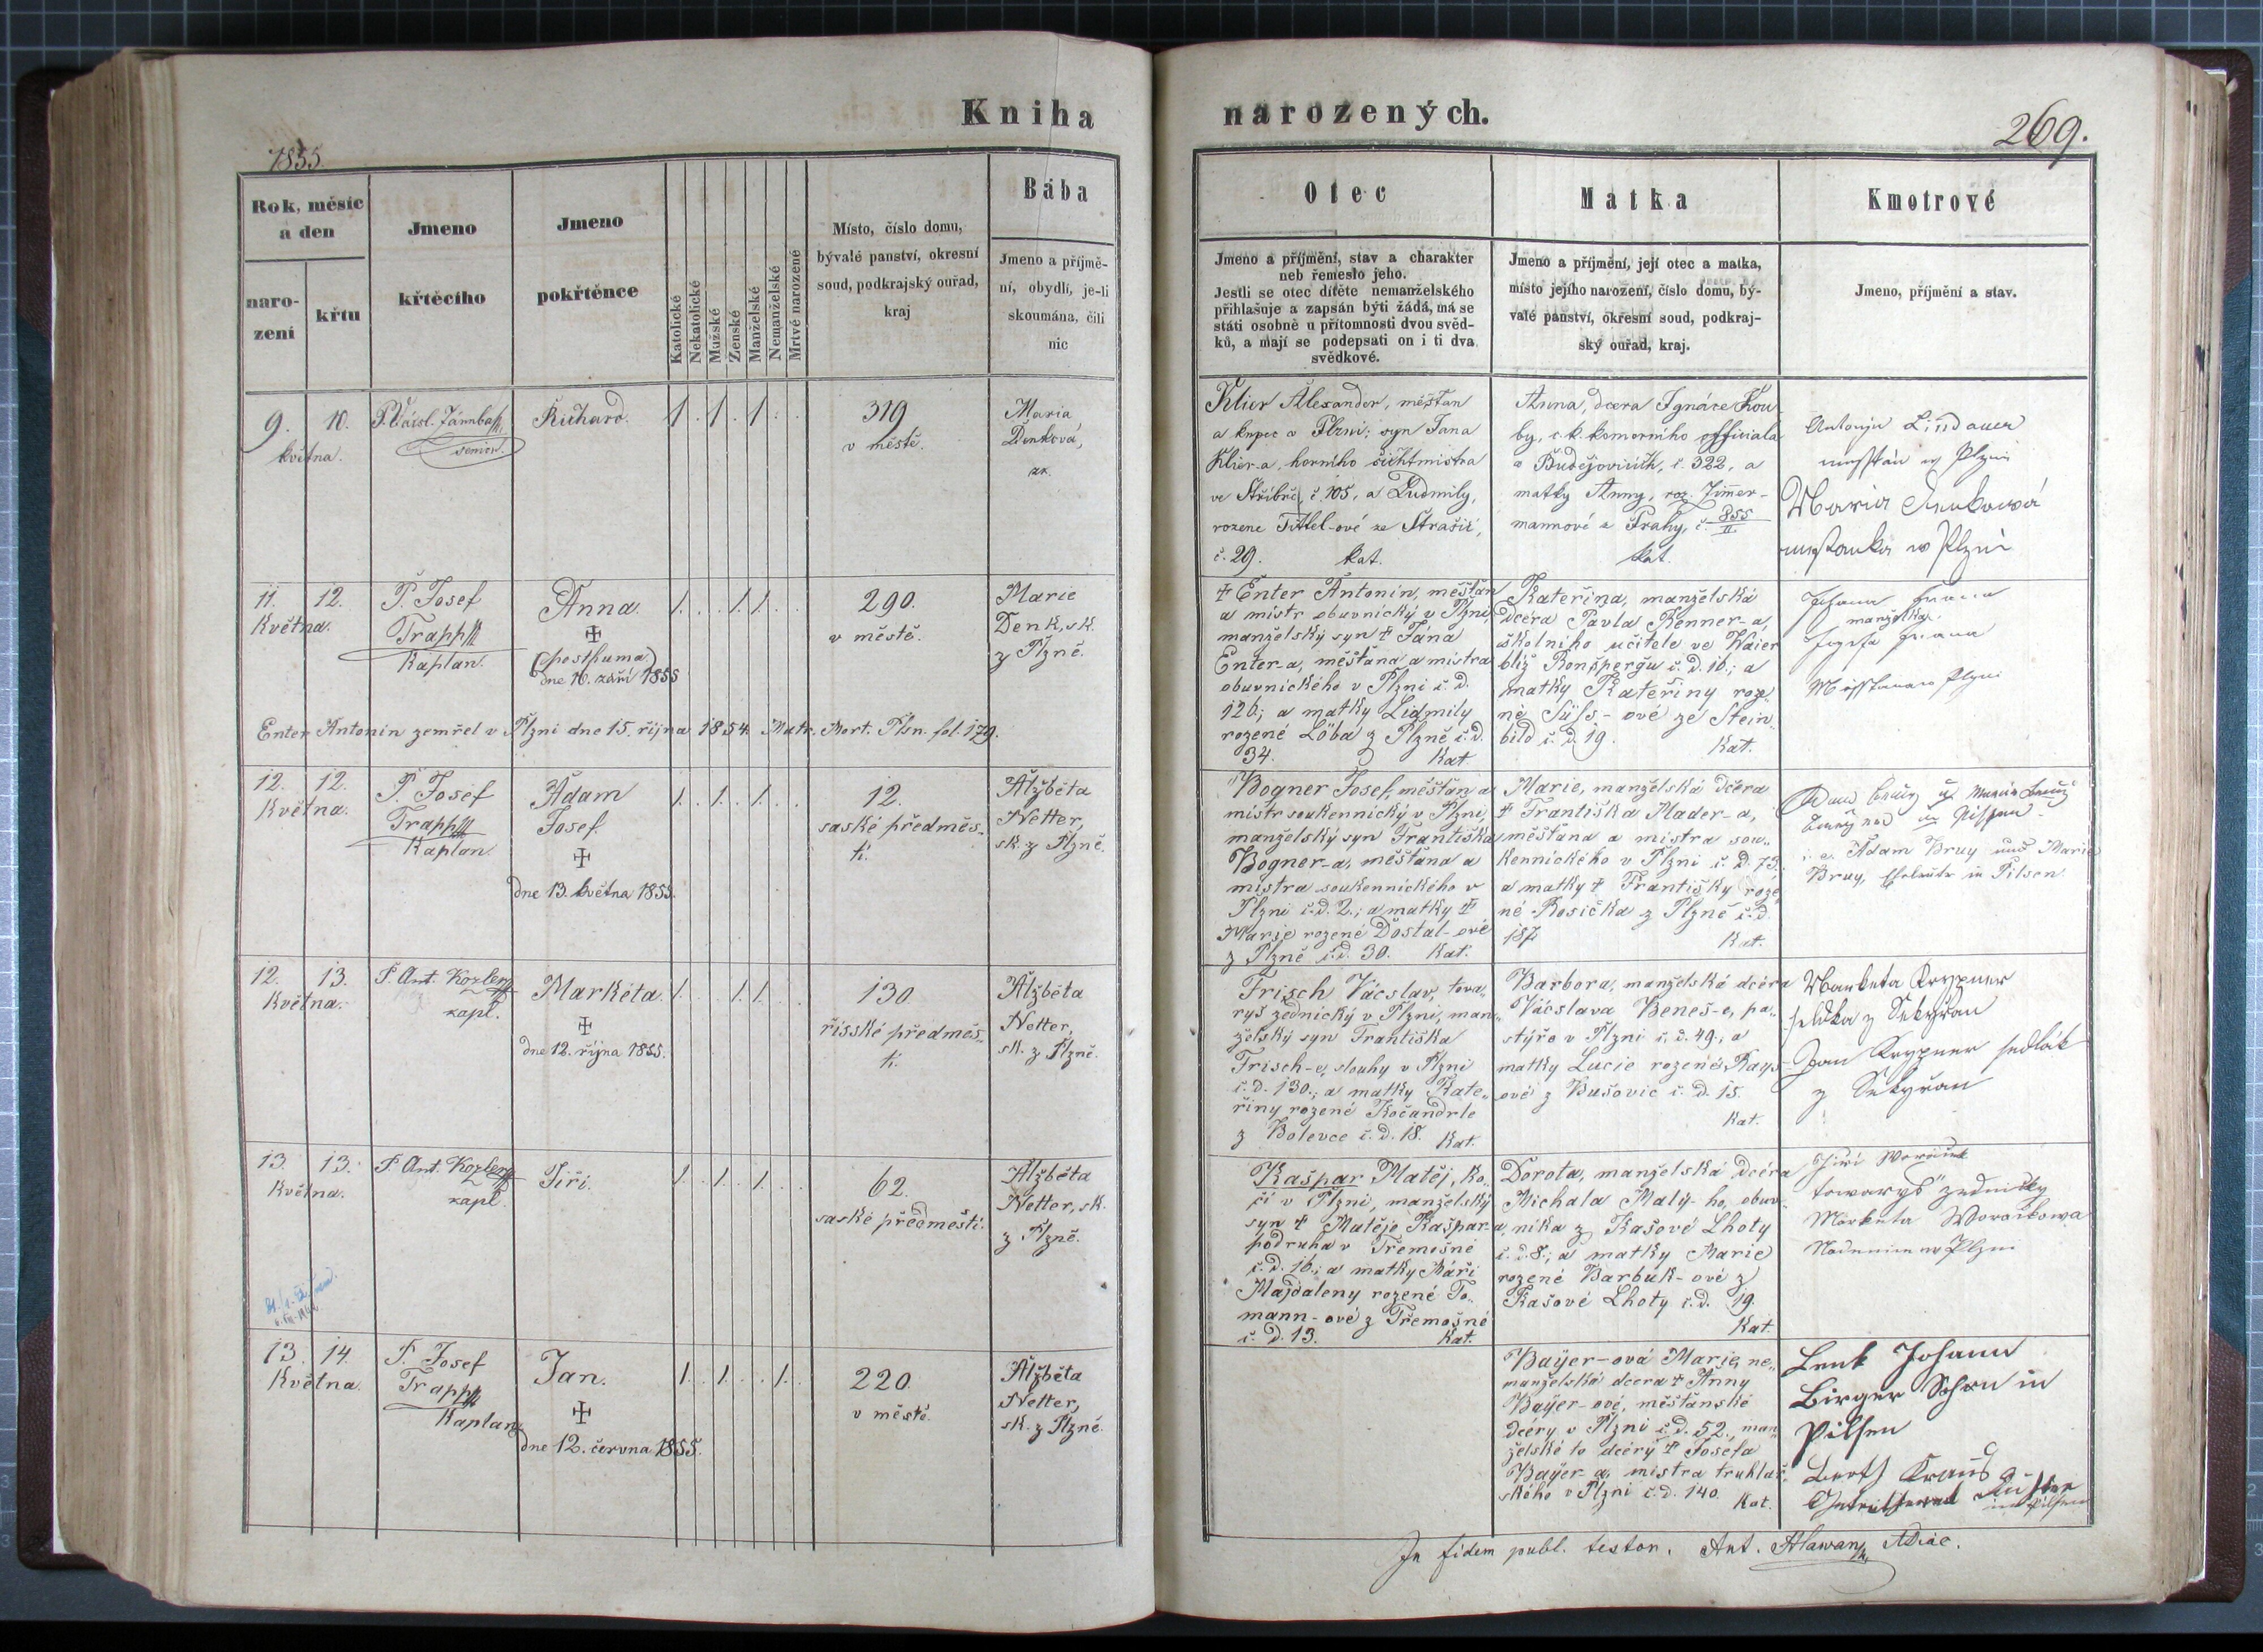 Kniha
narozených.
1855.
269.
Rok, měsíc
a den
naro-
zení
křtu
Jmeno
křtěcího
Jmeno
pokřtěnce
Katolické
Nekatolické
Mužské
Ženské
Manželské
Nemanželské
Mrtvě narozené
Místo, číslo domu,
bývalé panství, okresní
soud, podkrajský ouřad,
kraj
Bába
Jmeno a příjmě-
ní, obydlí, je-li
skoumána, čili
nic
Otec
Jmeno a příjmění, stav a charakter
neb řemeslo jeho.
Jestli se otec dítěte nemanželského
přihlašuje a zapsán býti žádá, má se
státi osobně u přítomnosti dvou svěd-
ků, a mají se podepsati on i ti dva
svědkové.
Matka
Jmeno a příjmění, její otec a matka,
místo jejího narození, číslo domu, bý-
valé panství, okresní soud, podkraj-
ský ouřad, kraj.
Kmotrové
Jmeno, příjmění a stav.
9. 10.
května.
Richard.
1. 1. 1.
319
v městě.
Maria
Denková,
zk.
Klier Alexander, měštan
a kupec v Plzni; syn Jana
Klier-a, horního šichtmistra
ve Stříbře, č. 105, a Ludmily,
rozene Tittel-ové ze Strašic,
č. 29. kat.
Anna, dcera Ignáce Kou-
by, c. k. komorního officiala
v Budějovicích, č. 322, a
matky Anny, roz. Zimmer-
mannové z Prahy, č. 855/II.
kat.
Antonjn Lindauer
messtan w Plzni
Maria Denkowá
messtanka w Plzni
11. 12.
Května.
P. Josef
Trapp
Kaplan.
Anna.
(posthuma)
dne 10. září 1855
1. 1. 1.
290.
v městě.
Marie
Denk, sk.
z Plzně.
Enter Antonin zemřel v Plzni dne 15. října 1854. Matr. Mort. Plsn. fol. 179.
† Enter Antonin, měštan
a mistr obuvnický v Plzni,
manželský syn † Jana
Enter-a, měštana a mistra
obuvnického v Plzni č. d.
126; a matky Lidmily
rozené Löba z Plzně č. d.
34. Kat.
Kateřina, manželská
dcera Pavla Renner-a,
školního učitele ve Waier
blíž Ronšpergu č. d. 16.; a
matky Kateřiny roze-
né Süss-ové ze Stein-
bild č. d. 19. Kat.
Johann
manželka
Josefa
12. 12.
Května.
P. Josef
Trapp
Kaplan.
Adam
Josef.
dne 13. května 1855.
1. 1. 1.
12.
saské předměs-
tí.
Alžběta
Netter,
sk. z Plzně.
Bogner Josef, měštan a
mistr soukennický v Plzni,
manželský syn Františka
Bogner-a, měštana a
mistra soukennického v
Plzni č. d. 2.; a matky †
Marie rozené Dostal-ové
z Plzně č. d. 30. Kat.
Marie, manželská dcera
† Františka Mader-a,
měštana a mistra sou-
kennického v Plzni č. d. 73.
a matky † Františky roze-
né Rosička z Plzně č. d.
187 Kat.
i. e. Adam Bruy und Marie
Bruy, Eheleute in Pilsen
12. 13.
Května.
P. Ant. Kozler
kapl.
Markéta.
dne 12. října 1855.
1. 1. 1.
130.
říšské předměs-
tí.
Alžběta
Netter,
sk. z Plzně.
Frisch Václav, tova-
ryš zednický v Plzni, man-
želský syn Františka
Frisch-e, slouhy v Plzni
č. d. 130.; a matky Kate-
řiny rozené Kočandrle
z Bolevce č. d. 18. Kat.
Barbora, manželská dcera
Václava Beneš-e, pa-
stýře v Plzni č. d. 49.; a
matky Lucie rozené Rays-
ové z Bušovic č. d. 15.
Kat.
Markéta
Jan
sedlák
13. 13.
Května.
P. Ant. Kozler
kapl.
Jiři.
1. 1. 1.
62.
saské předměstí.
Alžběta
Netter, sk.
z Plzně.
Kašpar Matěj, ko-
čí v Plzni, manželský
syn † Matěje Kašpar-a,
podruha v Třemošné
č. d. 16.; a matky Máří
Majdaleny rozené To-
mann-ové z Třemošné
č. d. 13. Kat.
Dorota, manželská dcera
Michala Malý-ho, obuv-
níka z Kašové Lhoty
č. d. 8.; a matky Marie
rozené Barbuk-ové z
Kašové Lhoty č. d. 19.
Kat.
towaryš zednicky
Markéta Woračkowa
w Plzni
13. 14.
Května.
P. Josef
Trapp
Kaplan
Jan.
dne 12. června 1855.
1. 1. 1.
220.
v městě.
Alžběta
Netter,
sk. z Plzně.
Bayer-ová Marie, ne-
manželská dcera † Anny
Bayer-ové, měštanské
dcéry v Plzni č. d. 52., man-
želské to dcéry † Josefa
Bayer-a, mistra truhlář-
ského v Plzni č. d. 140. Kat.
Lenk Johann
Birger Sohn in
Pilsen
Kraus
in Pilsen
In fidem publ. testor. Ant. Hlawan